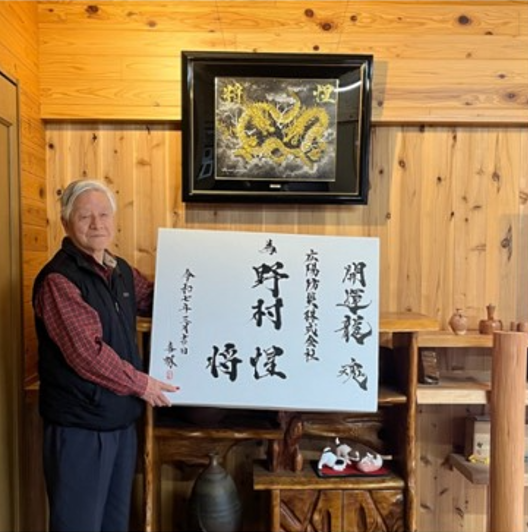 惺将
開運龍 魂
広陽防災株式会社
為
野村
惺将
令和七年三月吉日